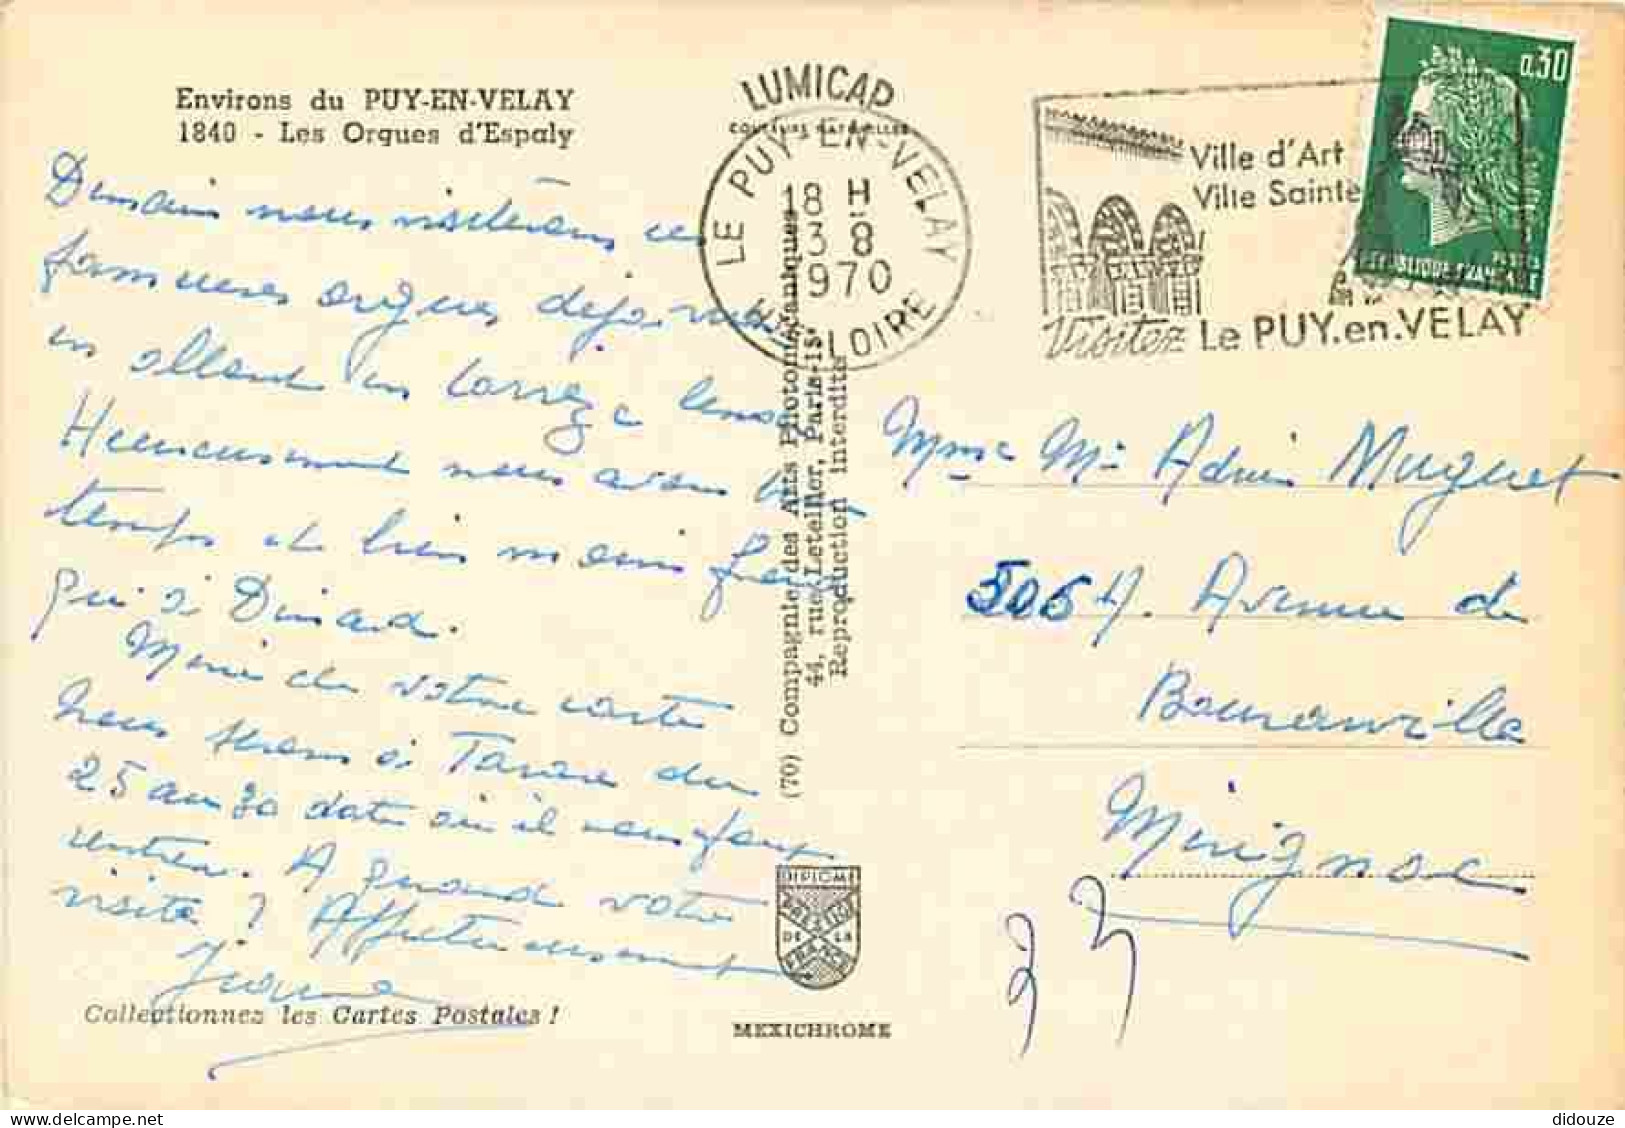 Environs du PUY-EN-VELAY
1840 - Les Orgues d'Espaly
Demain nous visiterons ces
fameuses orgues déjà vues
en allant en Corrèze
Heureusement nous avons
temps et bien moins
qu'à Dinard.
Merci de votre carte
nous serons à du
25 au 30 date où il nous faut
rentrer. A quand votre
visite ? Affectueusement
Jeanne
Collectionnez les Cartes Postales !
LUMICAP
COULEURS NATURELLES
LE PUY-EN-VELAY
18 H
3-8
1970
HTE LOIRE
(70) Compagnie des Arts Photomécaniques
44, rue Letellier, Paris-15e
Reproduction interdite
DIPLOME
PRESTIGE
DE LA
FRANCE
MEXICHROME
Ville d'Art
Ville Sainte
Visitez Le PUY.en.VELAY
0.30
POSTES
REPUBLIQUE FRANÇAISE
Mme Mr Muguet
Avenue de
Mérignac
33
didouze